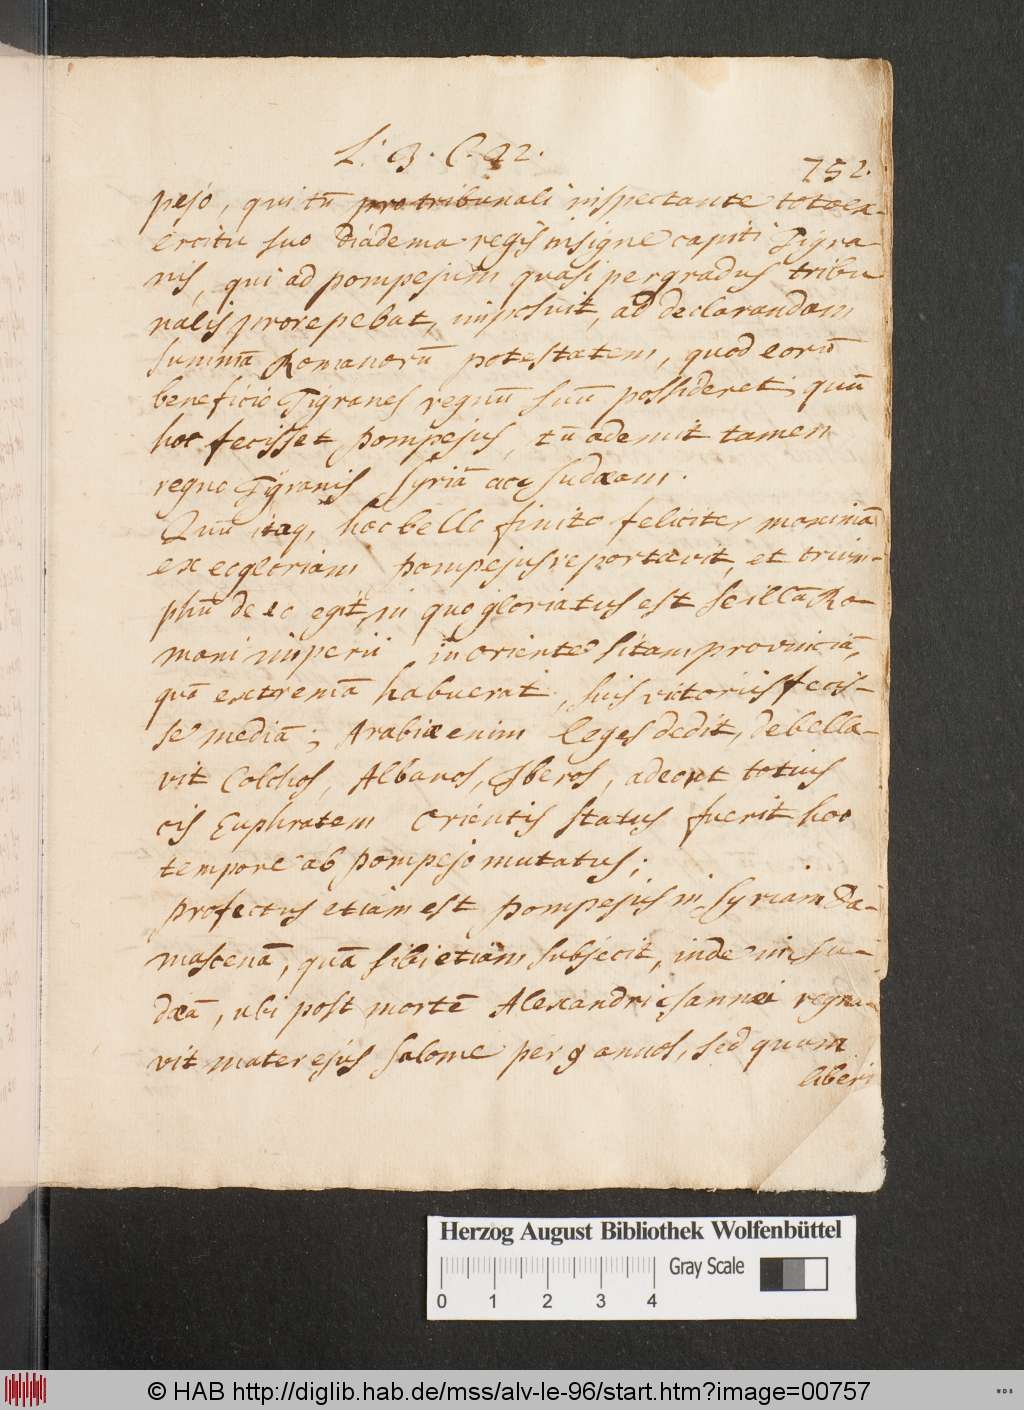 L. 3. C. 22.
752.
pejo, qui tũ pro tribunali inspectante toto ex-
ercitu suo diadema regis insigne capiti Tigra-
nis, qui ad pompejum quasi per gradus tribu
nalis prorepebat, imposuit, ad declarandam
summã Romanorũ potestatem, quod eorũ
beneficio Tigranes regnũ suũ possideret; quũ
hoc fecisset pompejus, tũ ademit tamen
regno Tigranis Syriã acq Judæam.
Quũ itaq, hoc bello finito feliciter maximã
ex eo gloriam pompejus reportavit, et trium-
phũ de eo egit, in quo gloriatus est se illã Ro-
mani imperii in oriente sitam provinciã,
quã extremã habuerat, suis victoriis fecis-
se mediã; Arabiæ enim leges dedit, debella-
vit Colchos, Albanos, Iberos, adeo ut totius
cis Euphratem orientis status fuerit hoc
tempore ab pompejo mutatus;
profectus etiam est pompejus in Syriam Da-
mascenã, quã sibi etiam subjecit, inde in Ju-
dæã, ubi post mortẽ Alexandri Jannæi regna-
vit mater ejus Salome per 9 annos, sed quam
liberi
Herzog August Bibliothek Wolfenbüttel
Gray Scale
0 1 2 3 4
© HAB http://diglib.hab.de/mss/alv-le-96/start.htm?image=00757